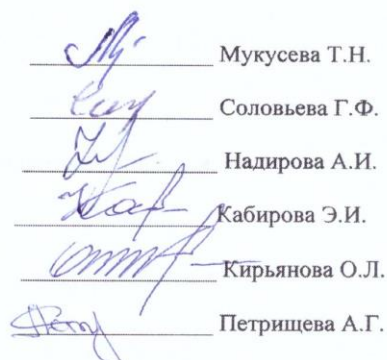 Мукусева Т.Н.
Соловьева Г.Ф.
Надирова А.И.
Кабирова Э.И.
Кирьянова О.Л.
Петрищева А.Г.